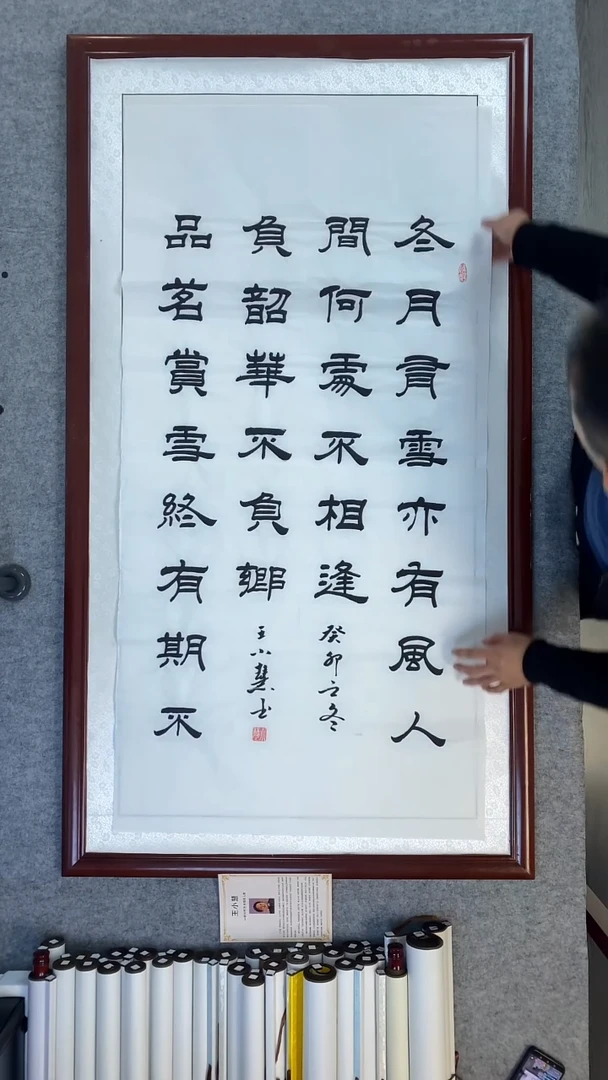 冬月有雪亦有風人
間何處不相逢
癸卯之冬
品茗賞雪終有期不
負韶華不負卿
王小慧书
王小慧